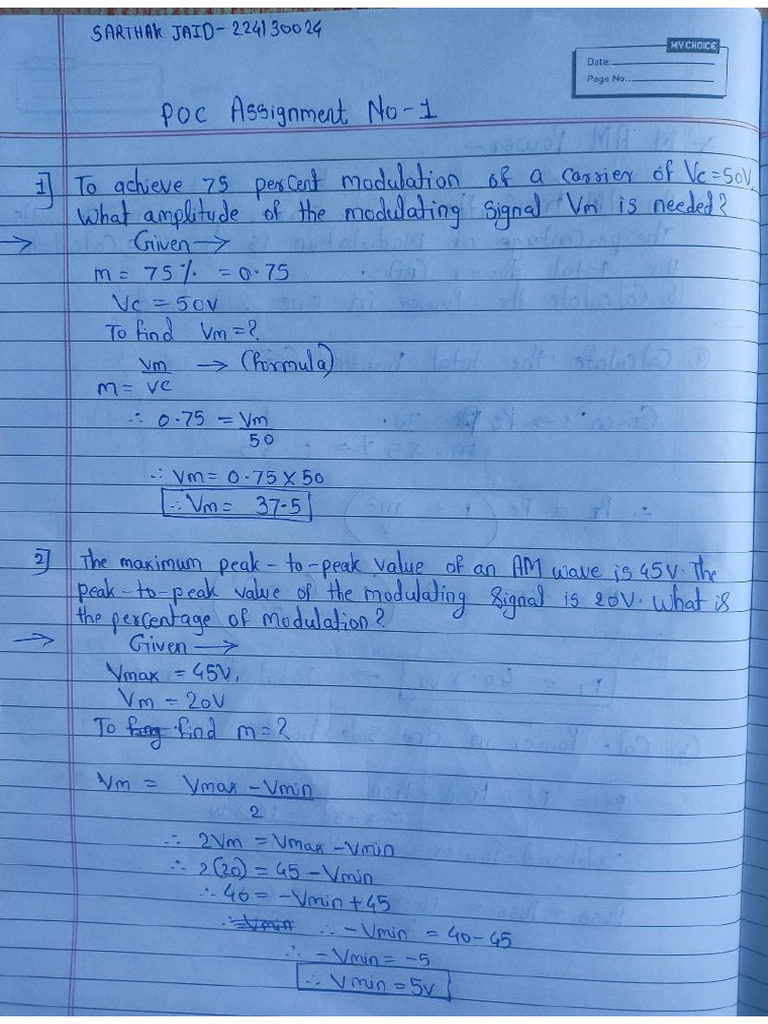 SARTHAK JAID-224130024
MY CHOICE
Date:
Page No.:
POC Assignment No-1
1] To achieve 75 percent modulation of a carrier of Vc=50V.
What amplitude of the modulating signal Vm is needed?
→ Given →
m = 75% = 0.75
Vc = 50V
To find Vm=?
Vm → (formula)
m = Vc
∴ 0.75 = Vm
50
∴ Vm = 0.75 × 50
∴ Vm = 37.5
2] The maximum peak-to-peak value of an AM wave is 45V. The
peak-to-peak value of the modulating signal is 20V. What is
the percentage of modulation?
→ Given →
Vmax = 45V,
Vm = 20V
To find m=?
Vm = Vmax - Vmin
2
∴ 2Vm = Vmax - Vmin
∴ 2(20) = 45 - Vmin
∴ 40 = -Vmin + 45
∴ Vmin ∴ -Vmin = 40-45
∴ -Vmin = -5
∴ Vmin = 5V